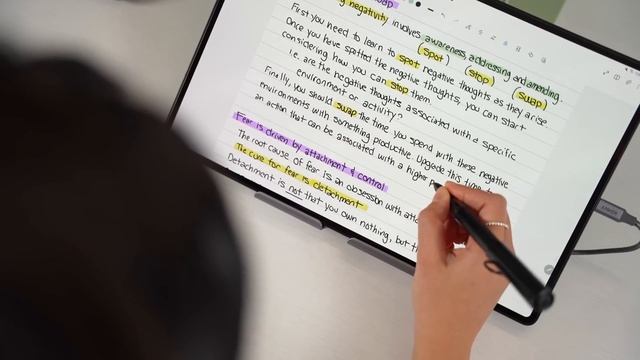 swap
negativity involves awareness, addressing and amending.
(spot) (stop) (swap)
First you need to learn to spot negative thoughts as they arise.
Once you have spotted the negative thoughts, you can start
considering how you can stop them.
i.e. are the negative thoughts associated with a specific
environment or activity?
Finally, you should swap the time you spend with these negative
environments with something productive. Upgrade this time
an action that can be associated with a higher
Fear is driven by attachment & control
The root cause of fear is an obsession with
The cure for fear is detachment
Detachment is not that you own nothing, but